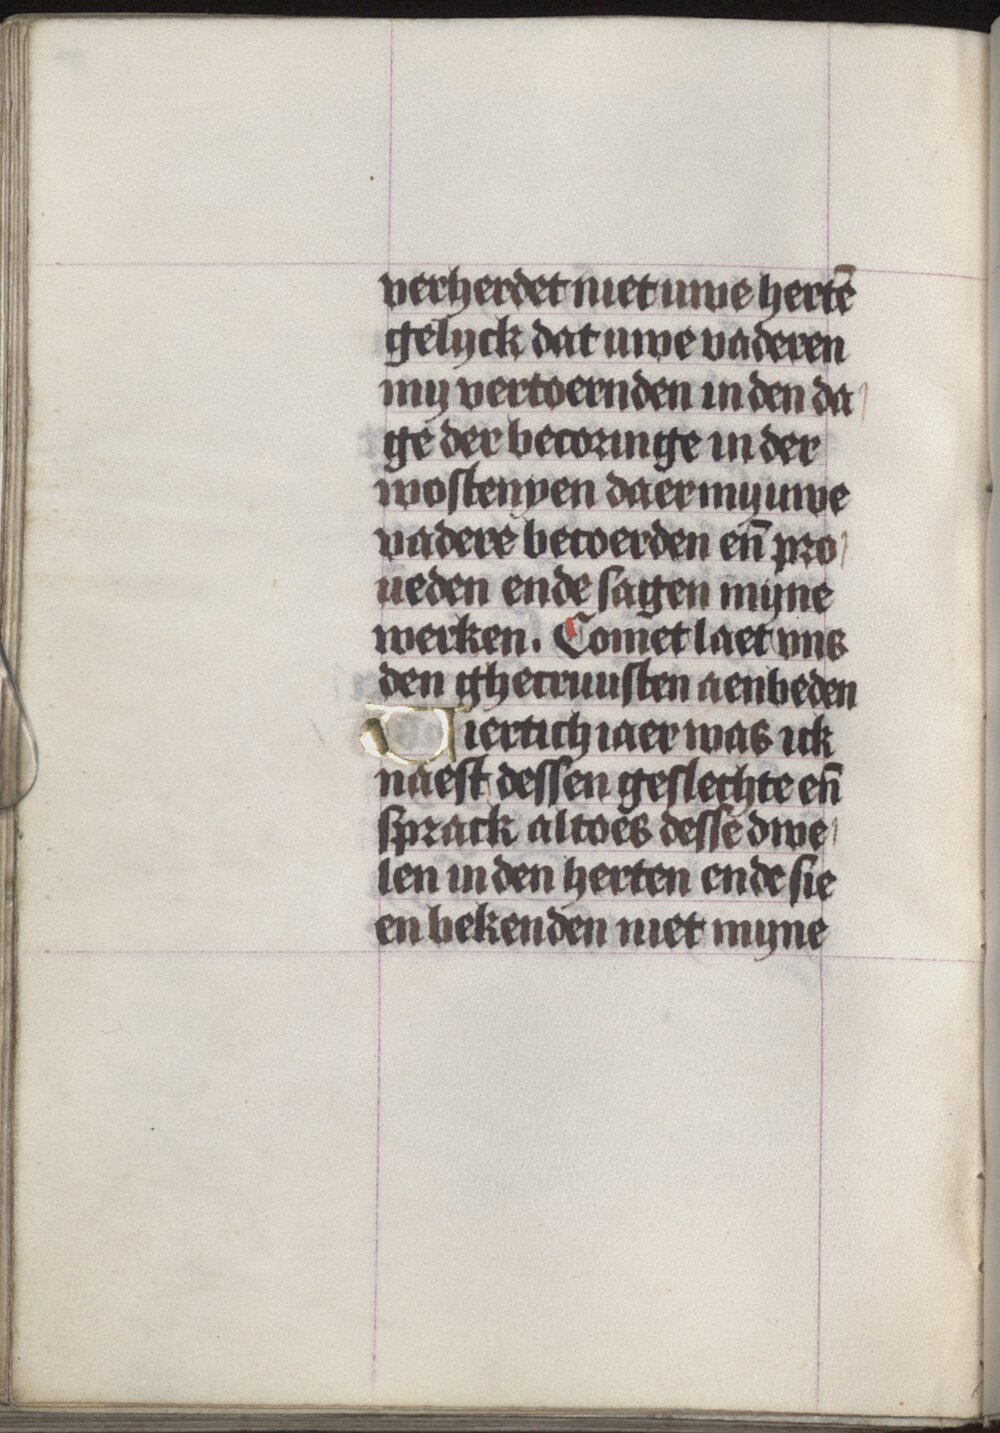 verherdet niet uwe hertē
gelyck dat uwe vaderen
my vertoernden in den da
ge der becoringe in der
wostenyen daer my uwe
vaderē becoerden en̄ pro
ueden ende sagen myne
werken. Comet laet vns
den ghecruusten aenbeden
Viertich iaer was ick
naest dessen geslechte en̄
sprack altoes desse dwe
len in den herten ende sie
en bekenden niet myne